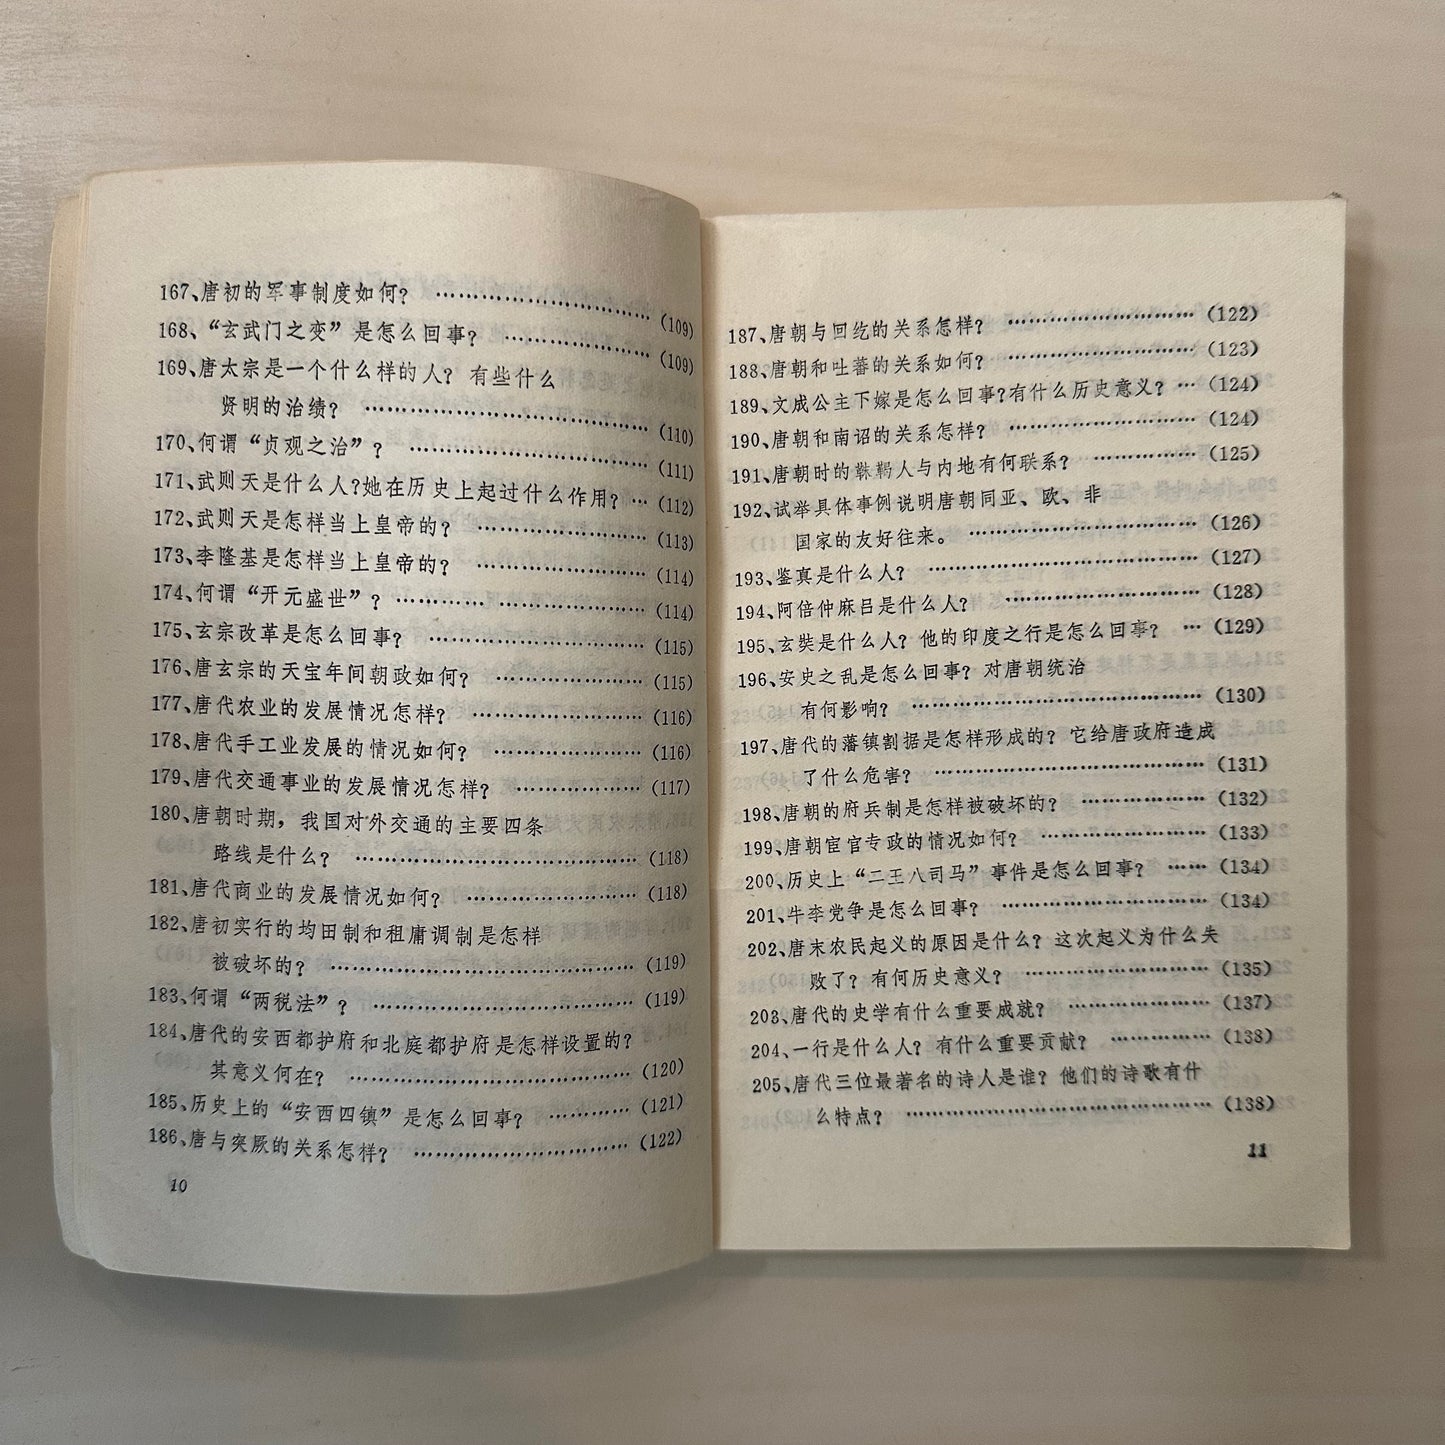 167、唐初的军事制度如何？ ……………………（109）
168、“玄武门之变”是怎么回事？ ………………（109）
169、唐太宗是一个什么样的人？有些什么
贤明的治绩？ ……………………………（110）
170、何谓“贞观之治”？ ………………………（111）
171、武则天是什么人？她在历史上起过什么作用？…（112）
172、武则天是怎样当上皇帝的？ ………………（113）
173、李隆基是怎样当上皇帝的？ ………………（114）
174、何谓“开元盛世”？………… ………………（114）
175、玄宗改革是怎么回事？ ……………………（115）
176、唐玄宗的天宝年间朝政如何？ ………………（115）
177、唐代农业的发展情况怎样？ ………………（116）
178、唐代手工业发展的情况如何？ ………………（116）
179、唐代交通事业的发展情况怎样？ ……………（117）
180、唐朝时期，我国对外交通的主要四条
路线是什么？ ……………………………（118）
181、唐代商业的发展情况如何？ ………………（118）
182、唐初实行的均田制和租庸调制是怎样
被破坏的？ ………………………………（119）
183、何谓“两税法”？ …………………………（119）
184、唐代的安西都护府和北庭都护府是怎样设置的？
其意义何在？ ……………………………（120）
185、历史上的“安西四镇”是怎么回事？ …………（121）
186、唐与突厥的关系怎样？ ……………………（122）
10
187、唐朝与回纥的关系怎样？ …………………（122）
188、唐朝和吐蕃的关系如何？ …………………（123）
189、文成公主下嫁是怎么回事？有什么历史意义？…（124）
190、唐朝和南诏的关系怎样？ …………………（124）
191、唐朝时的靺鞨人与内地有何联系？ …………（125）
192、试举具体事例说明唐朝同亚、欧、非
国家的友好往来。 ………………………（126）
193、鉴真是什么人？ …………………………（127）
194、阿倍仲麻吕是什么人？ …………………（128）
195、玄奘是什么人？他的印度之行是怎么回事？ …（129）
196、安史之乱是怎么回事？对唐朝统治
有何影响？ ………………………………（130）
197、唐代的藩镇割据是怎样形成的？它给唐政府造成
了什么危害？ ……………………………（131）
198、唐朝的府兵制是怎样被破坏的？ ……………（132）
199、唐朝宦官专政的情况如何？ ………………（133）
200、历史上“二王八司马”事件是怎么回事？ ……（134）
201、牛李党争是怎么回事？ ……………………（134）
202、唐末农民起义的原因是什么？这次起义为什么失
败了？有何历史意义？ …………………（135）
203、唐代的史学有什么重要成就？ ………………（137）
204、一行是什么人？有什么重要贡献？ …………（138）
205、唐代三位最著名的诗人是谁？他们的诗歌有什
么特点？ …………………………………（138）
11